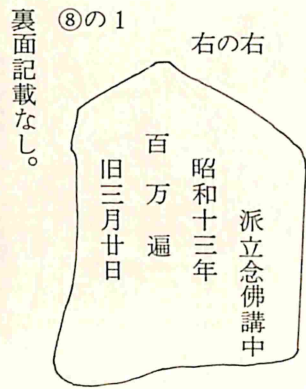 ⑧の1
右の右
派立念佛講中
昭和十三年
百万遍
旧三月廿日
裏面記載なし。